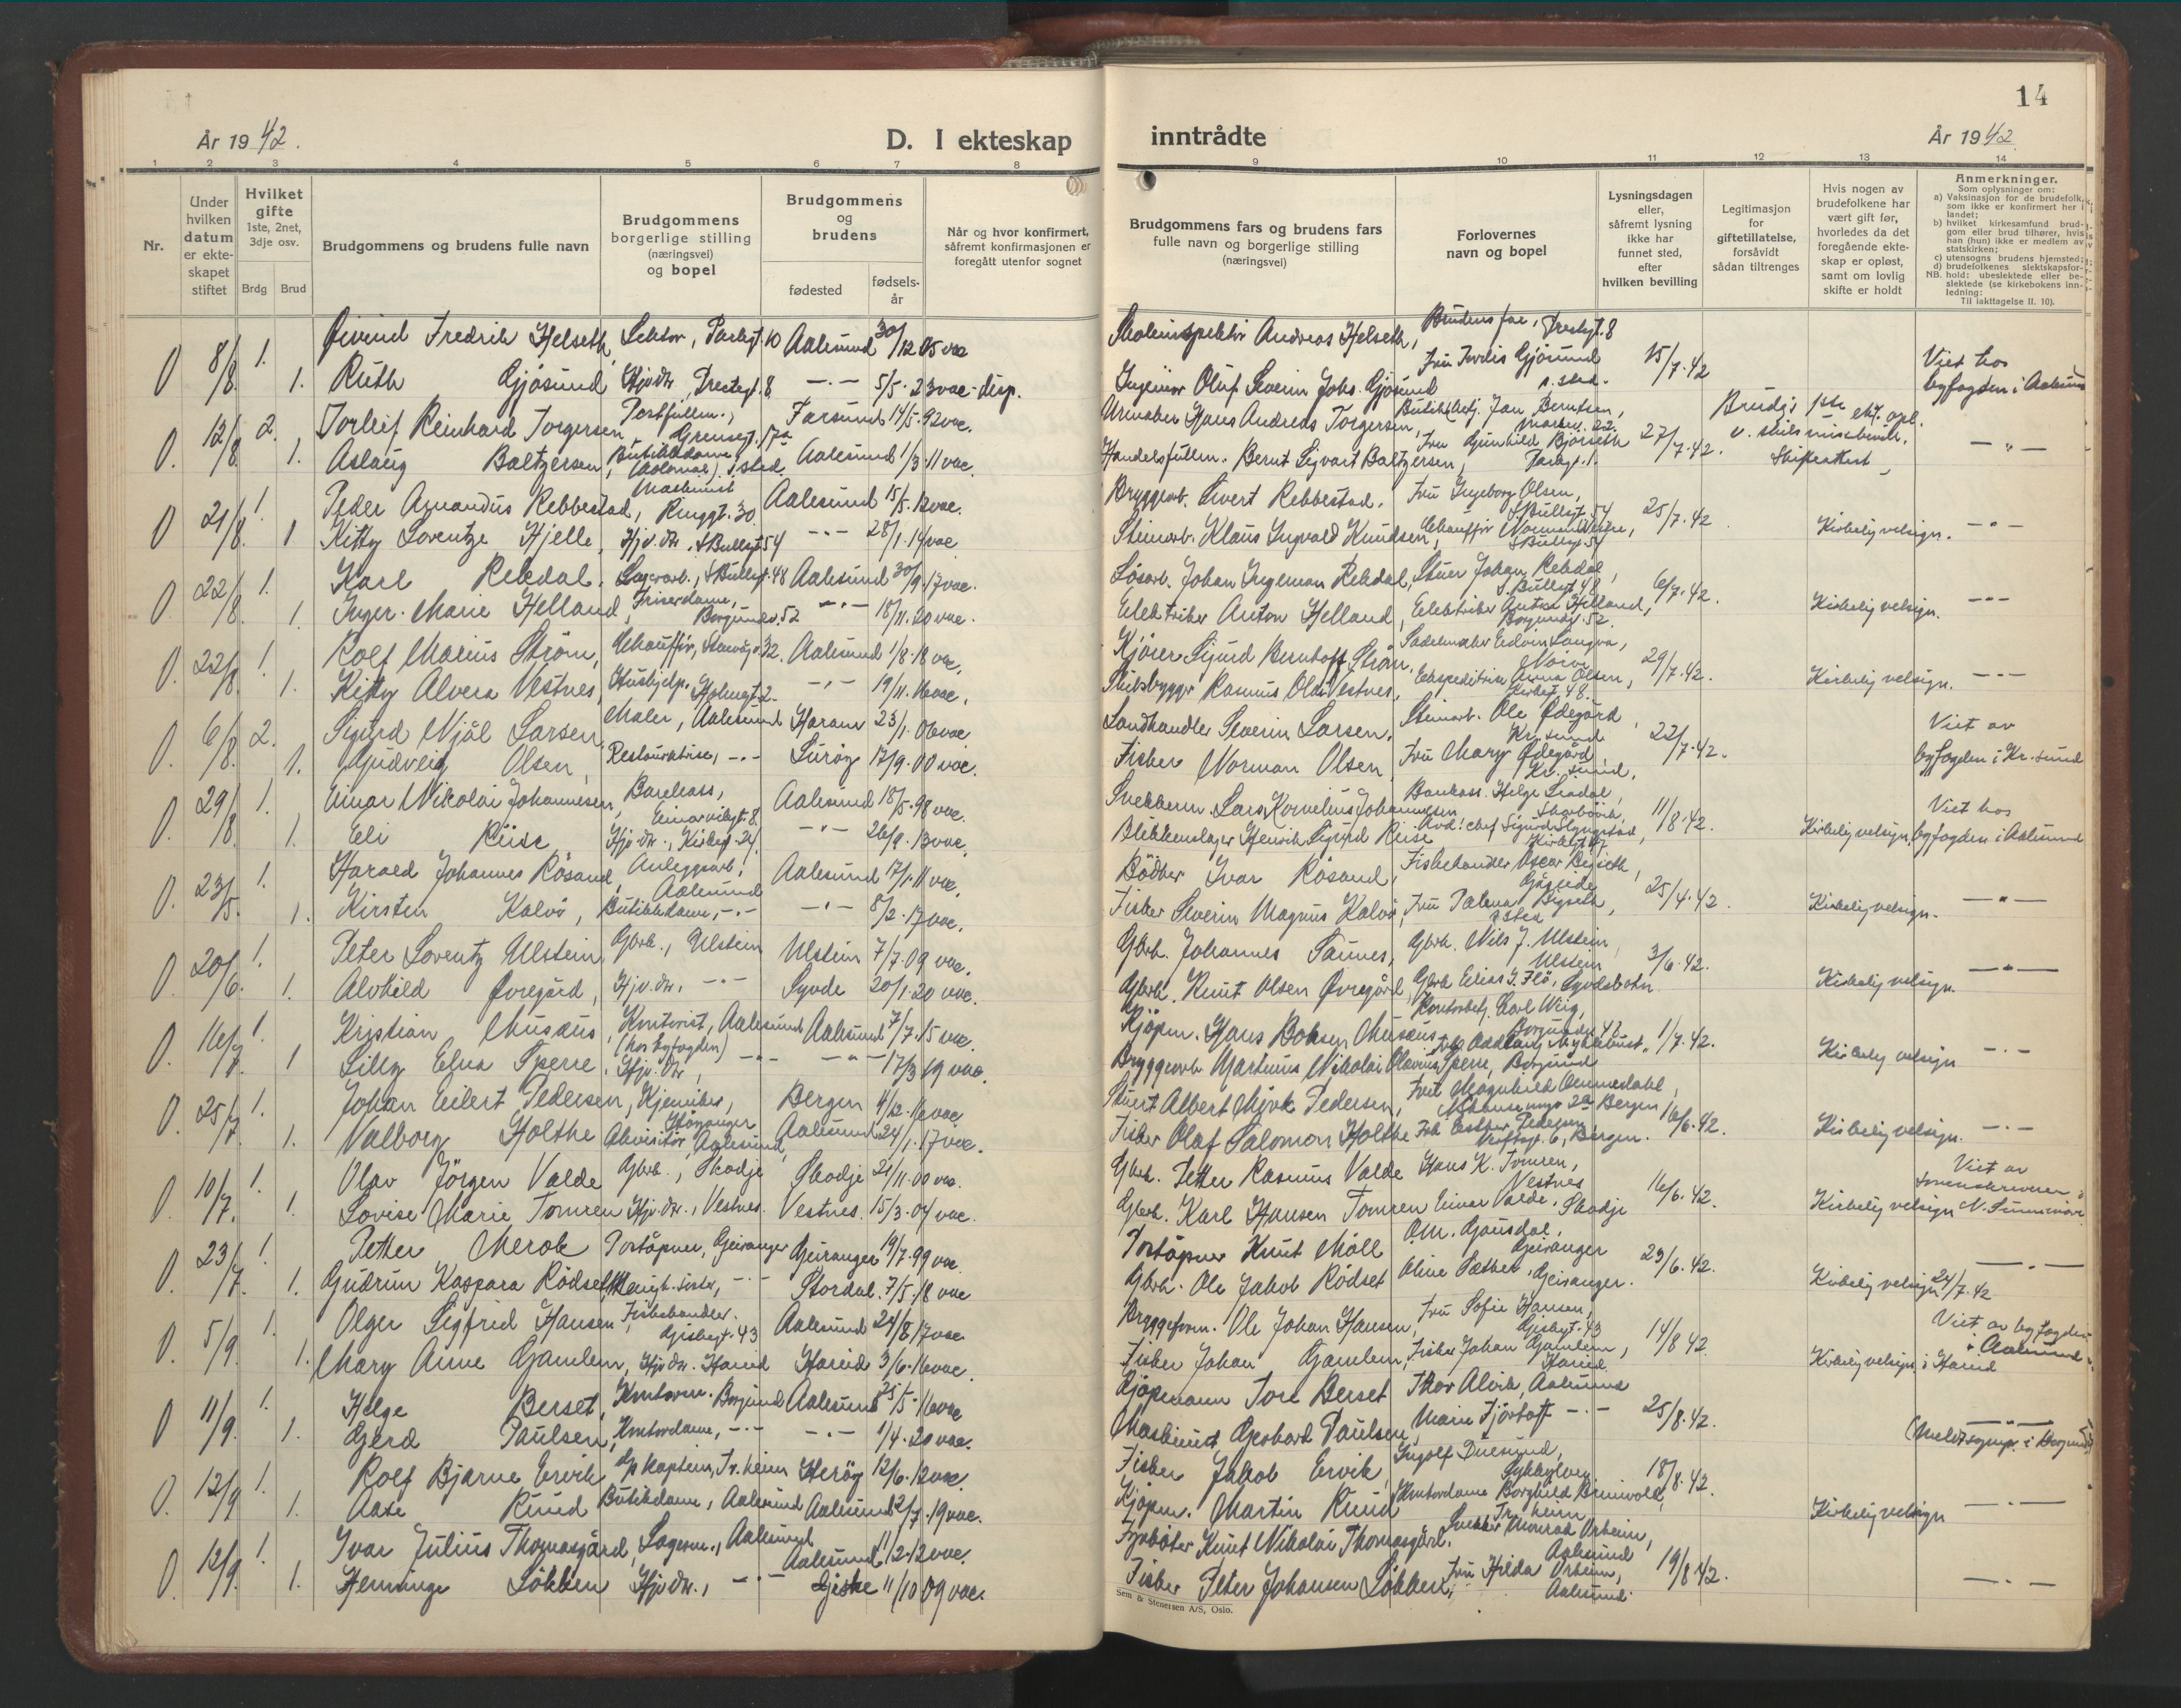 År 1942.
D. I ekteskap
inntrådte
År 1942
14
1 2 3 4 5 6 7 8 9 10 11 12 13 14
Nr.
Under hvilken datum er ekteskapet stiftet
Hvilket gifte 1ste, 2net, 3dje osv.
Brdg Brud
Brudgommens og brudens fulle navn
Brudgommens borgerlige stilling (næringsvei) og bopel
Brudgommens og brudens
fødested
fødselsår
Når og hvor konfirmert, såfremt konfirmasjonen er foregått utenfor sognet
Brudgommens fars og brudens fars fulle navn og borgerlige stilling (næringsvei)
Forlovernes navn og bopel
Lysningsdagen eller, såfremt lysning ikke har funnet sted, efter hvilken bevilling
Legitimasjon for giftetillatelse, forsåvidt sådan tiltrenges
Hvis nogen av brudefolkene har vært gift før, hvorledes da det foregående ekteskap er opløst, samt om lovlig skifte er holdt
Anmerkninger.
Som oplysninger om:
a) Vaksinasjon for de brudefolk, som ikke er konfirmert her i landet;
b) hvilket kirkesamfund brudgom eller brud tilhører, hvis han (hun) ikke er medlem av statskirken;
c) utensogns brudens hjemsted;
d) brudefolkenes slektskapsforhold: ubeslektede eller beslektede (se kirkebokens innledning:
NB.
Til iakttagelse II. 10).
O 8/8. 1. Øivind Fredrik Helseth, Lektor, Parkgt. 10 Aalesund 30/12 05 vac
Skoleinspektør Andreas Helseth, Brudens far, Prestegt. 8
1. Ruth Gjøsund Hjv.dtr., Prestegt. 8. -"- 5/5. 23 vac - disp.
Ingeniør Oluf Severin Johs. Gjøsund Fru Jordis Gjøsund s. sted. 15/7.42 Viet hos byfogden i Aalesund
O. 12/8. 2. Torleif Reinhard Torgersen, Postfullm., Grensegt. 17a Farsund 14/5. 92 vac.
Urmaker Hans Andreas Torgersen, Butikkbetj. Jan Berntsen, Markev. 22. 27/7.42.
1. Aslaug Baltzersen, Butikkdame, (Kolonial) s. sted Aalesund 1/3. 11 vac.
Handelsfullm. Bernt Sigvart Baltzersen, Fru Gunhild Bjørseth Parkgt. 1. Brudgs 1ste ekt. opl. v. skilsmissebevilg. Skifteattest -"-
O 21/8. 1. Peder Amandus Rebbestad, Maskinist Ringgt. 30. Aalesund 15/5. 12 vac.
Bryggearb. Sivert Rebbestad. Fru Ingeborg Olsen, S. Bullsgt. 54 25/7.42
1 Kitty Lorentze Hjelle, Hjv. dtr. S. Bullsgt 54 -"- 28/1. 14 vac
Steinarb. Klaus Ingvald Knudsen, Chauffør Norman Vestre, S Bullsgt. 54 Kirkelig velsign. -"-
O. 22/8. 1. Karl Rekdal. Lagerarb., S Bullsgt. 48 Aalesund 30/9. 17 vac.
Løsarb. Johan Ingeman Rekdal, Stuer Johan Rekdal, S. Bullsgt. 48 6/7.42.
1. Inger-Marie Helland, Friserdame, Borgundv. 52 -"- 18/11. 20 vac.
Elektriker Anton Helland, Elektriker Anton Helland, Borgundv. 52. Kirkelig velsign. -"-
O. 22/8. 1. Rolf Marius Strøm, Chauffør, Storhågv. 32. Aalesund 1/8. 18 vac,
Kjører Sigurd Bernhoff Strøm, Sadelmaker Edvin Langva, Nørve 29/7.42.
1. Kitty Alvera Vestnes, Hushjelp. Holmegt. 2. -"- 19/11. 16 vac.
Skibsbygger Rasmus Olai Vestnes, Ekspeditrise Anna Olsen, Kirkegt. 48. Kirkelig velsign. -"-
O. 6/8. 2. Sigurd Njål Larsen, Maler, Aalesund Haram 23/1. 06 vac
Landhandler Severin Larsen. Steinarb. Ole Ødegård, Kr. sund 22/7.42.
1. Gudveig Olsen, Restauratrise, -"- Surøy 17/9. 00 vac.
Fisker Norman Olsen Fru Mary Ødegård, Kr. sund. Viet av byfogden i Kr. sund
O. 29/8. 1. Einar Nikolai Johannesen, Bankass, Einarvikgt. 8. Aalesund 18/5. 98 vac.
Snekkerm. Lars Kornelius Johannesen Bankass. Helge Liadal, 11/8.42.
1. Eli Reise Hjv dtr., Kirkegt. 24. -"- 26/9. 13 vac.
Blikkenslager Henrik Sigurd Reise Avd. chef Sigurd Slyngstad, Kirkelig velsign. Viet hos byfogden i Aalesund
O. 23/5. 1. Harald Johannes Røsand, Anleggsarb., Aalesund Aalesund 17/1. 11 vac.
Bødker Ivar Røsand, Fiskehandler Oscar Bigseth, 25/4.42.
1. Kirsten Kalvø, Butikkdame, -"- -"- 8/2. 17 vac.
Fisker Severin Magnus Kalvø, Fru Palma Bigseth, s sted Kirkelig velsign. -"-
O. 20/6. 1. Peter Lorentz Ulstein, Gbrk., Ulstein Ulstein 7/7. 09 vac.
Gbrk. Johannes Saunes, Gbrk. Nils J. Ulstein, Ulstein 3/6.42.
1. Alvhild Øvregård, Hjv. dtr, -"- Syvde 20/1. 20 vac.
Gbrk. Knut Olsen Øvregård, Gbrk Elias I. Flø, Syvdsbotn Kirkelig velsign. -"-
O. 16/7. 1. Kristian Musæus, Kontorist, Aalesund (hos byfogden) Aalesund 7/7. 15 vac.
Kjøpm. Hans Bohsen Musæus Kontorbetj. Karl Wiig, Borgundv. 42 1/7.42.
1 Lilly Elna Sperre, Hjv. dtr, -"- -"- 17/3 19 vac.
Bryggearb Martinus Nikolai Olavius Sperre, Myklebust, Borgund Kirkelig velsign -"-
O. 25/7. 1. Johan Eilert Pedersen, Kjemiker, Høyanger Bergen 4/12. 16 vac.
Stuert Albert Mjør Pedersen, Frk Magnhild Ommedahl, Bergen 16/6.42.
1. Valborg Holthe Avisitør, Aalesund, Aalesund 24/1. 17 vac.
Fisker Olaf Salomon Holthe Frk Esther Pedersen Verftsgt. 6, Bergen. Kirkelig velsign. -"-
O 10/7. 1. Olav Jørgen Valde Gbrk., Skodje Skodje 21/11. 00 vac.
Gbrk. Petter Rasmus Valde Hans K. Tomren, Vestnes 16/6.42.
1. Lovise Marie Tomren Hjv. dtr., Vestnes. Vestnes. 15/3. 04 vac.
Gbrk. Karl Hansen Tomren Einar Valde. Skodje Kirkelig velsign Viet av sorenskriveren i N. Sunnmøre
O. 23/7. 1. Petter Merok Poståpner, Geiranger Geiranger 19/7. 99 vac.
Poståpner Knut Møll O.M. Gausdal, Geiranger 23/6.42.
1. Gudrun Kaspara Rødseth, Menigh.søster, -"- Stordal. 7/5. 18 vac
Gbrk. Ole Jakob Rødset Oline Sæther, Geiranger. Kirkelig velsign 24/7.42 -"-
O. 5/9. 1. Olger Sigfrid Hansen, Fiskehandler. Gisbegt. 43 Aalesund 24/8 17 vac
Bryggeform. Ole Johan Hansen, Fru Sofie Hansen, Gisbegt. 43 14/8 42.
1. Mary Anne Gamlem, Hjv dtr. Hareid Hareid 3/6. 16 vac.
Fisker Johan Gamlem, Fisker Johan Gamlem, Hareid Kirkelig velsign. i Hareid Viet av byfogden i Aalesund.
O 11/9. 1. Helge Berset, Kontorm. Borgund Aalesund 25/5. 16 vac
Kjøpmann Tore Berset Thor Alvik, Aalesund 25/8.42.
1. Gerd Paulsen, Kontordame, -"- -"- 1/4. 20 vac.
Maskinist Gerhard Paulsen, Marie Fjørtoft -"- -"- (Meldt sognepr. i Borgund)
O. 12/9 1. Rolf Bjarne Ervik Kaptein, Tr. heim Herøy 12/6. 12 vac.
Fisker Jakob Ervik, Ingolf Duesund, Sykkylven 18/8.42.
1. Aase Ruud Butikkdame, Aalesund Aalesund 2/7. 19 vac.
Kjøpm. Martin Ruud Kontordame Borghild Brunvold, Tr. heim Kirkelig velsign -"-
O. 12/9. 1. Ivar Julius Thomasgård, Lagerm., Aalesund Aalesund 1/12. 12 vac.
Fyrbøter Knut Nikolai Thomasgård. Snekker Monrad Orheim, Aalesund 19/8 42.
1. Henninge Løkken Hjv dtr., -"- Giske 11/10 09 vac.
Fisker Peter Johansen Løkken, Fru Hilda Orheim, Aalesund. -"-
Sem & Stenersen A/S, Oslo.